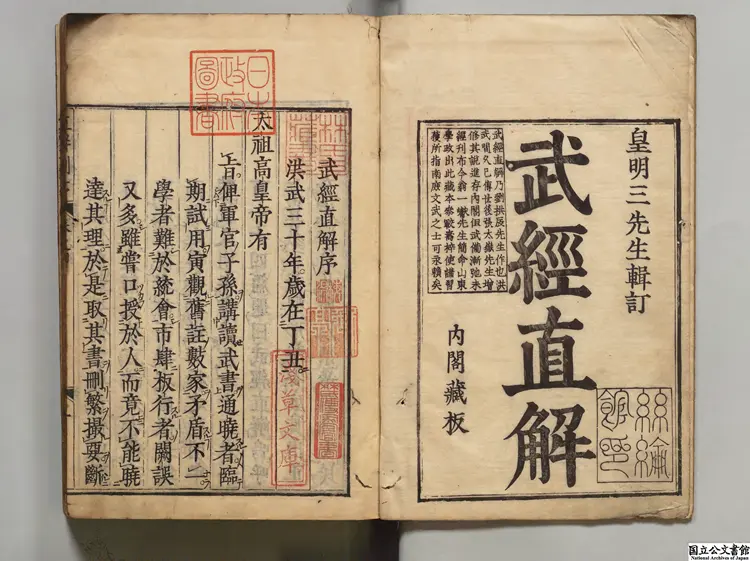 皇明三先生輯訂
武經直解
武經直解乃劉拱辰先生作也洪
武久已傳世後張太嶽先生增
修其說進存內閣但武備漸弛未
經刊布今翁一先生簡命山東
學政出此藏本梓使講習
獲所指南庶文武之士可永賴矣
內閣藏板
絲綸
館印
武經直解序
洪武三十年歲在丁丑
太祖高皇帝有
旨俾軍官子孫講讀武書通曉者臨
期試用寅觀舊註數家矛盾不一
學者難於統會市肆板行者闕誤
又多雖嘗口授於人而竟不能曉
達其理於是取其書刪繁撮要斷
日本
政府
圖書
林氏
藏書
淺草文庫
国立公文書館
National Archives of Japan